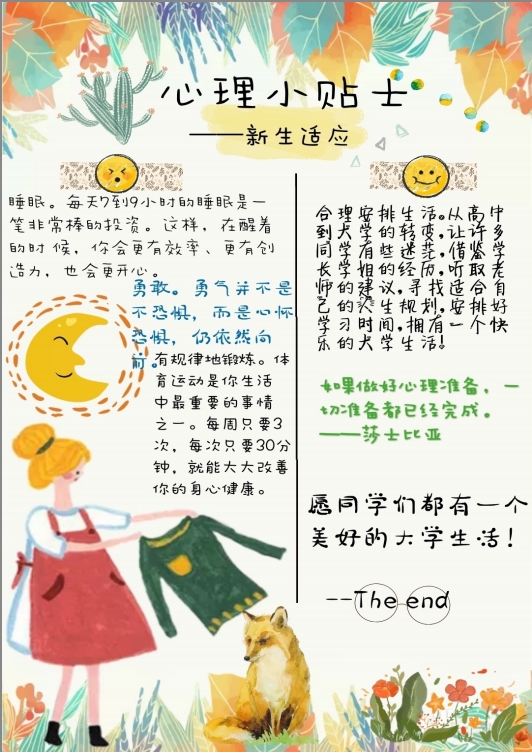 心理小贴士
——新生适应
睡眠。每天7到9小时的睡眠是一
笔非常棒的投资。这样，在醒着
的时候，你会更有效率、更有创
造力，也会更开心。
勇敢。勇气并不是
不恐惧，而是心怀
恐惧，仍依然向
前。
有规律地锻炼。体
育运动是你生活
中最重要的事情
之一。每周只要3
次，每次只要30分
钟，就能大大改善
你的身心健康。
合理安排生活。从高中
到大学的转变，让许多
同学有些迷茫，借鉴学
长学姐的经历，听取老
师的建议，寻找适合自
己的人生规划，安排好
学习时间，拥有一个快
乐的大学生活！
如果做好心理准备，一
切准备都已经完成。
——莎士比亚
愿同学们都有一个
美好的大学生活！
--The end